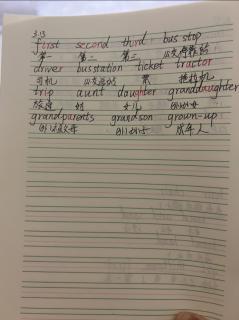 3.13
first second third bus stop
第一 第二 第三
driver bus station ticket tractor
司机 票 拖拉机
trip aunt daughter granddaughter
旅途 女儿
grandparents grandson grown-up
成年人